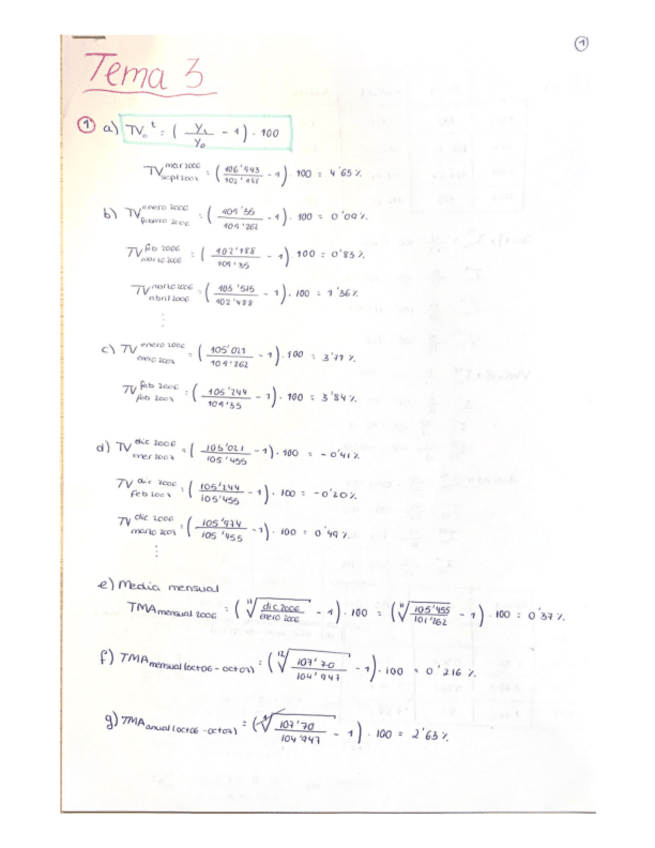 1
Tema 3
1 a) TV₀ᵗ = ( yₜ / y₀ - 1 ) · 100
TV mar 2006 sept 2007 = ( 106'943 / 102'488 - 1 ) · 100 = 4'65 %
b) TV enero 2006 febrero 2006 = ( 101'35 / 101'262 - 1 ) · 100 = 0'09 %.
TV feb 2006 marzo 2006 = ( 102'188 / 101'35 - 1 ) 100 = 0'83 %.
TV marzo 2006 abril 2006 = ( 103'575 / 102'488 - 1 ) · 100 = 1'36 %
⋮
c) TV enero 2006 enero 2007 = ( 105'021 / 101'262 - 1 ) · 100 = 3'71 %.
TV feb 2006 feb 2007 = ( 105'244 / 101'35 - 1 ) · 100 = 3'84 %.
d) TV dic 2006 ener 2007 = ( 105'021 / 105'455 - 1 ) · 100 = - 0'41 %.
TV dic 2006 feb 2007 = ( 105'244 / 105'455 - 1 ) · 100 = -0'20 %.
TV dic 2006 marzo 2007 = ( 105'974 / 105'455 - 1 ) · 100 = 0'49 %.
⋮
e) Media mensual
TMA mensual 2006 = ( ¹¹√ dic 2006 / enero 2006 - 1 ) · 100 = ( ¹¹√ 105'455 / 101'262 - 1 ) · 100 = 0'37 %.
f) TMA mensual (oct 06 - oct 07) = ( ¹²√ 107'70 / 104'947 - 1 ) · 100 = 0'216 %.
g) TMA anual (oct 06 - oct 07) = ( ¹√ 107'70 / 104'947 - 1 ) · 100 = 2'63 %.